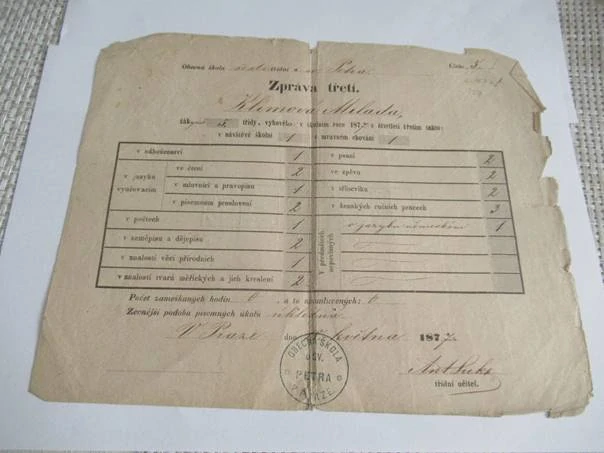 Obecná škola u sv. Petra. Číslo 3
Zpráva třetí.
Klimova Milada,
třídy, vyhověla v školním roce 187 v čtvrtletí třetím takto:
v návštěvě školní 1 v mravném chování 1
v náboženství 1
v jazyku vyučovacím
ve čtení 2
v mluvnici a pravopisu 1
v písemném proslovení 2
v počtech 1
v zeměpisu a dějepisu 2
v znalosti věcí přírodních 1
v znalosti tvarů měřických a jich kreslení 2
v psaní 2
ve zpěvu 2
v tělocviku 2
v ženských ručních pracech 3
v předmětech nepovinných
v jazyku německém 1
Počet zameškaných hodin 0 a to neomluvených: 0
Zevnější podoba písemných úkolů úhledná
V Praze dne května 187
OBECNÁ ŠKOLA
U SV.
PETRA
V PRAZE
Ant. Suks
třídní učitel.